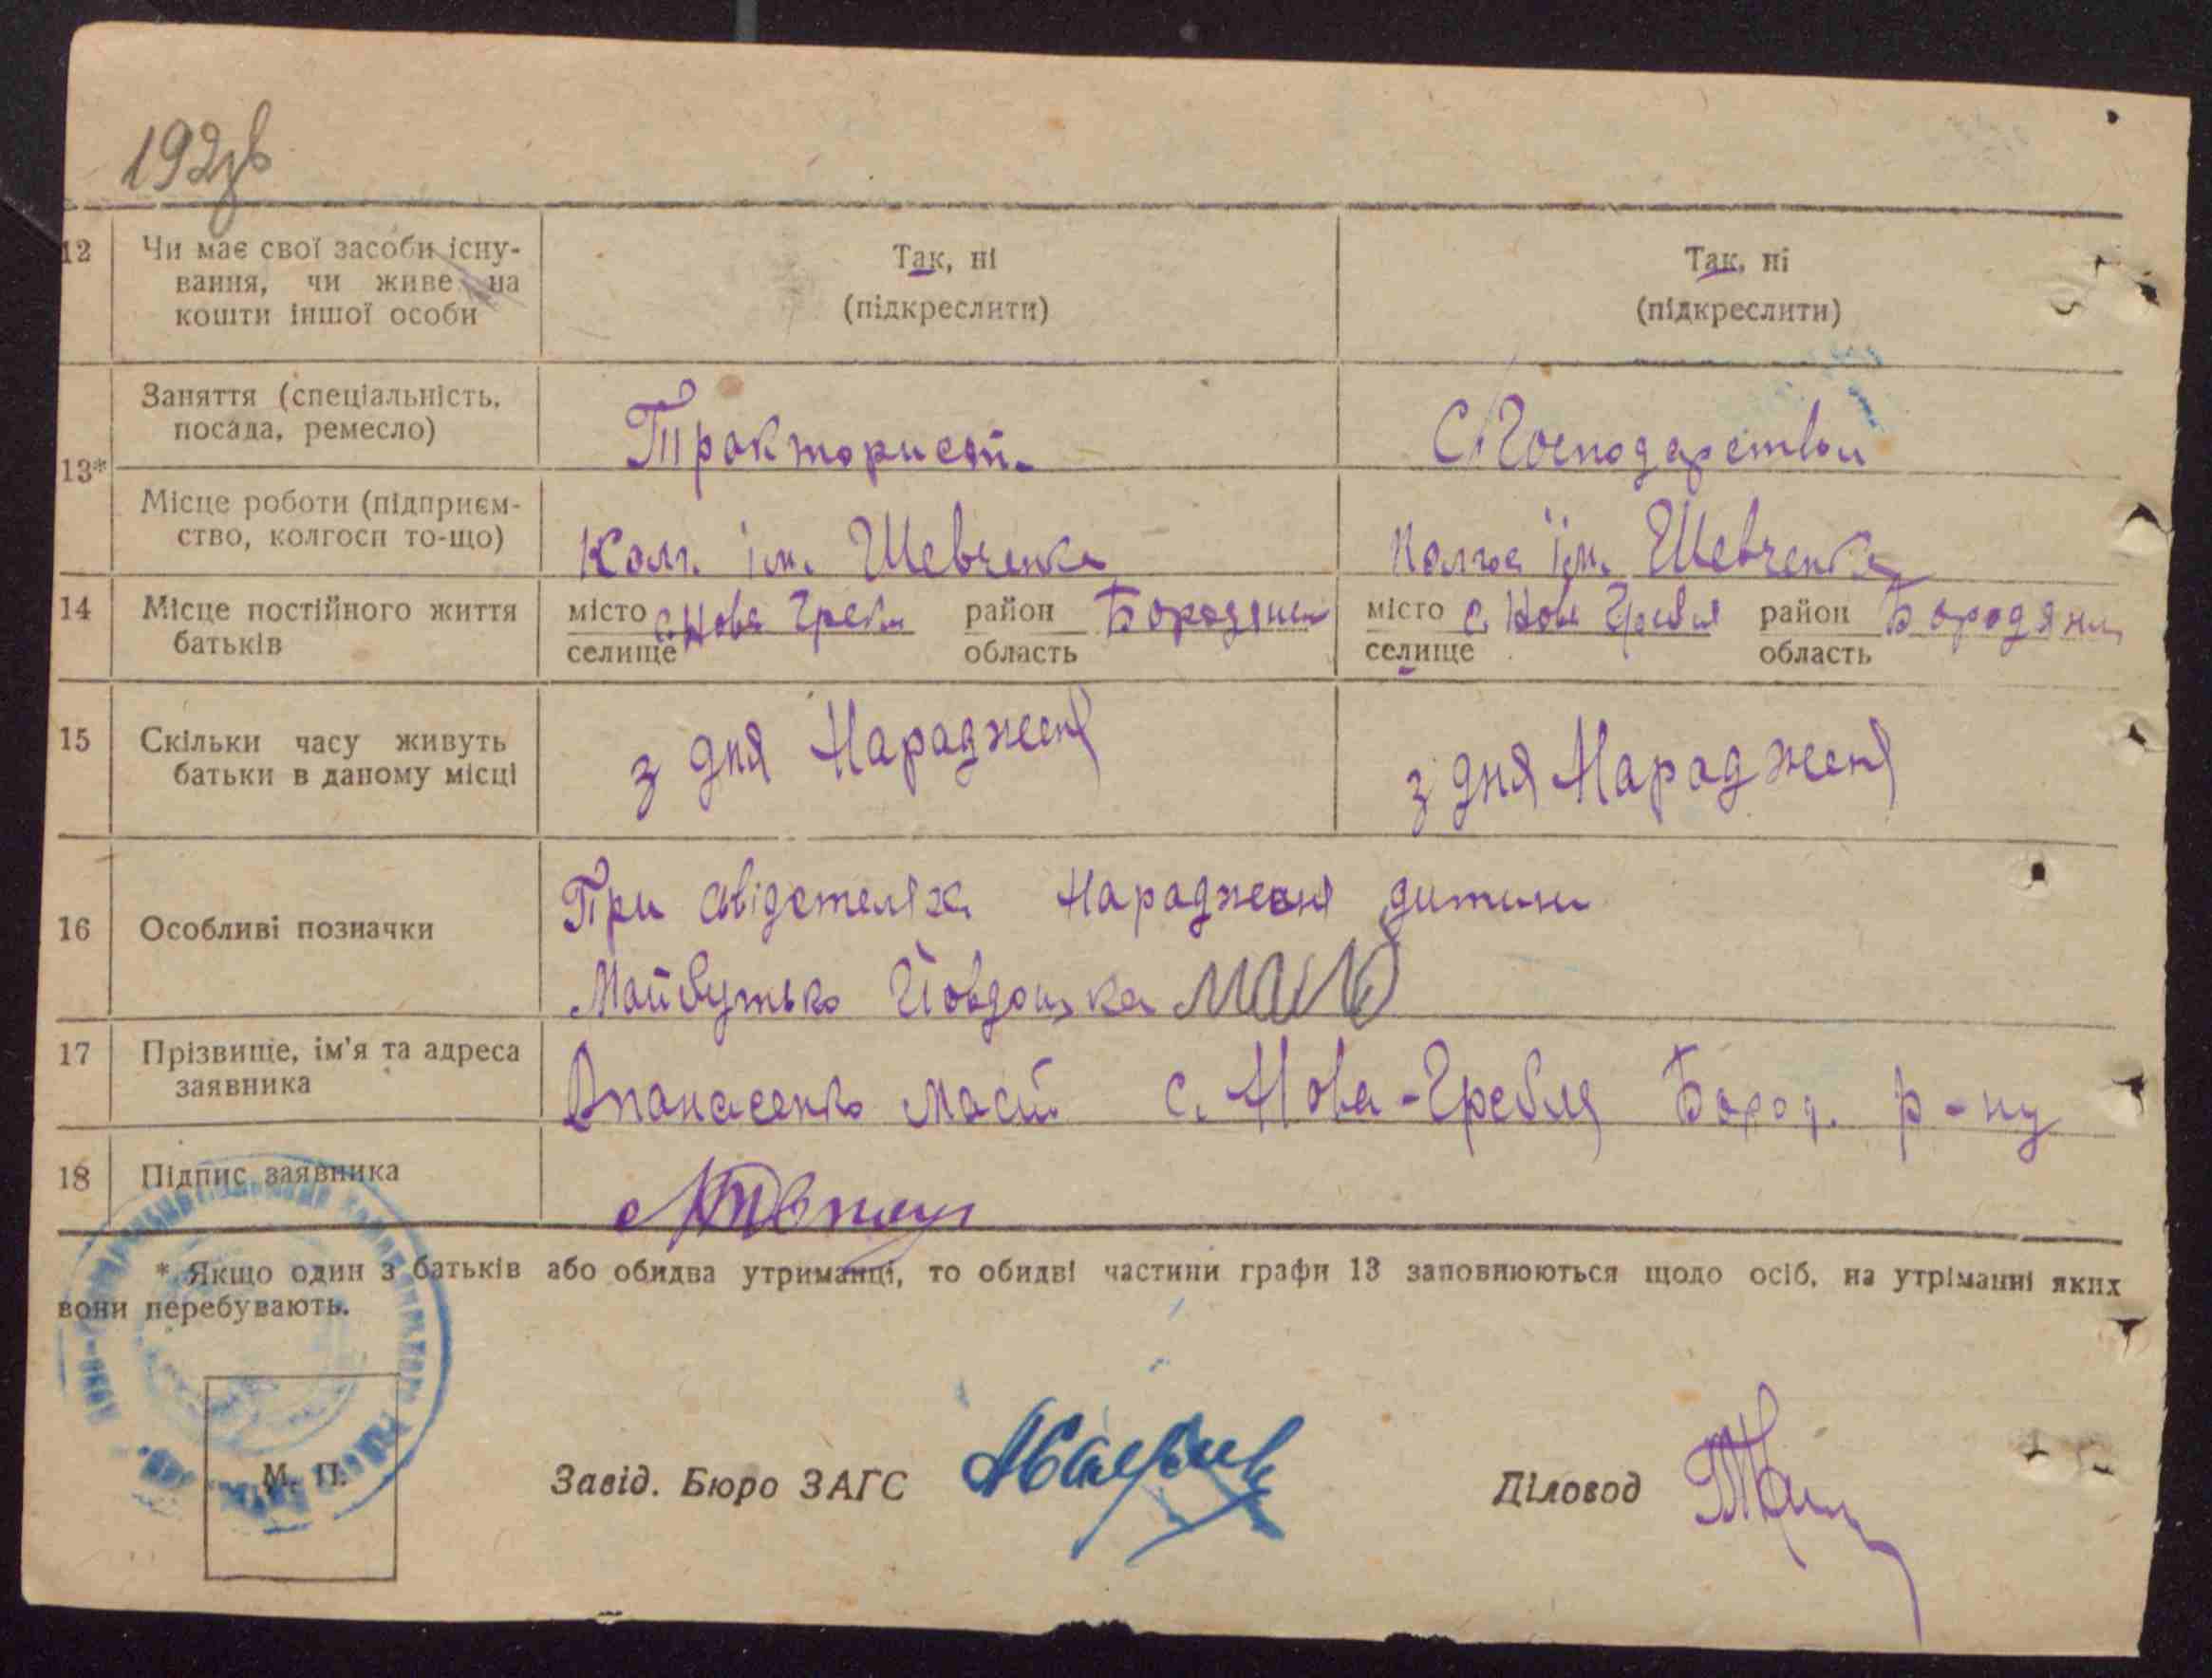 192зв
12 Чи має свої засоби існу-
вання, чи живе на
кошти іншої особи
Так, ні
(підкреслити)
Так, ні
(підкреслити)
13*
Заняття (спеціальність,
посада, ремесло)
Тракторист.
С. Господарство
Місце роботи (підприєм-
ство, колгосп то-що)
Колг. ім. Шевченка
Колгос ім. Шевченка
14 Місце постійного життя
батьків
місто с. Нова Гребля район Бородянка
селище область
місто с. Нова Гребля район Бородянка
селище область
15 Скільки часу живуть
батьки в даному місці
з дня Нарадженя
з дня Нарадженя
16 Особливі позначки
При свідетелях Нарадженя дитини
Майбутько Йовдошка
17 Прізвище, ім'я та адреса
заявника
Опанасенко с. Нова-Гребля Бород. р-ну
18 Підпис заявника
* Якщо один з батьків або обидва утриманці, то обидві частини графи 13 заповнюються щодо осіб, на утріманні яких
вони перебувають.
М. П.
Завід. Бюро ЗАГС
Діловод